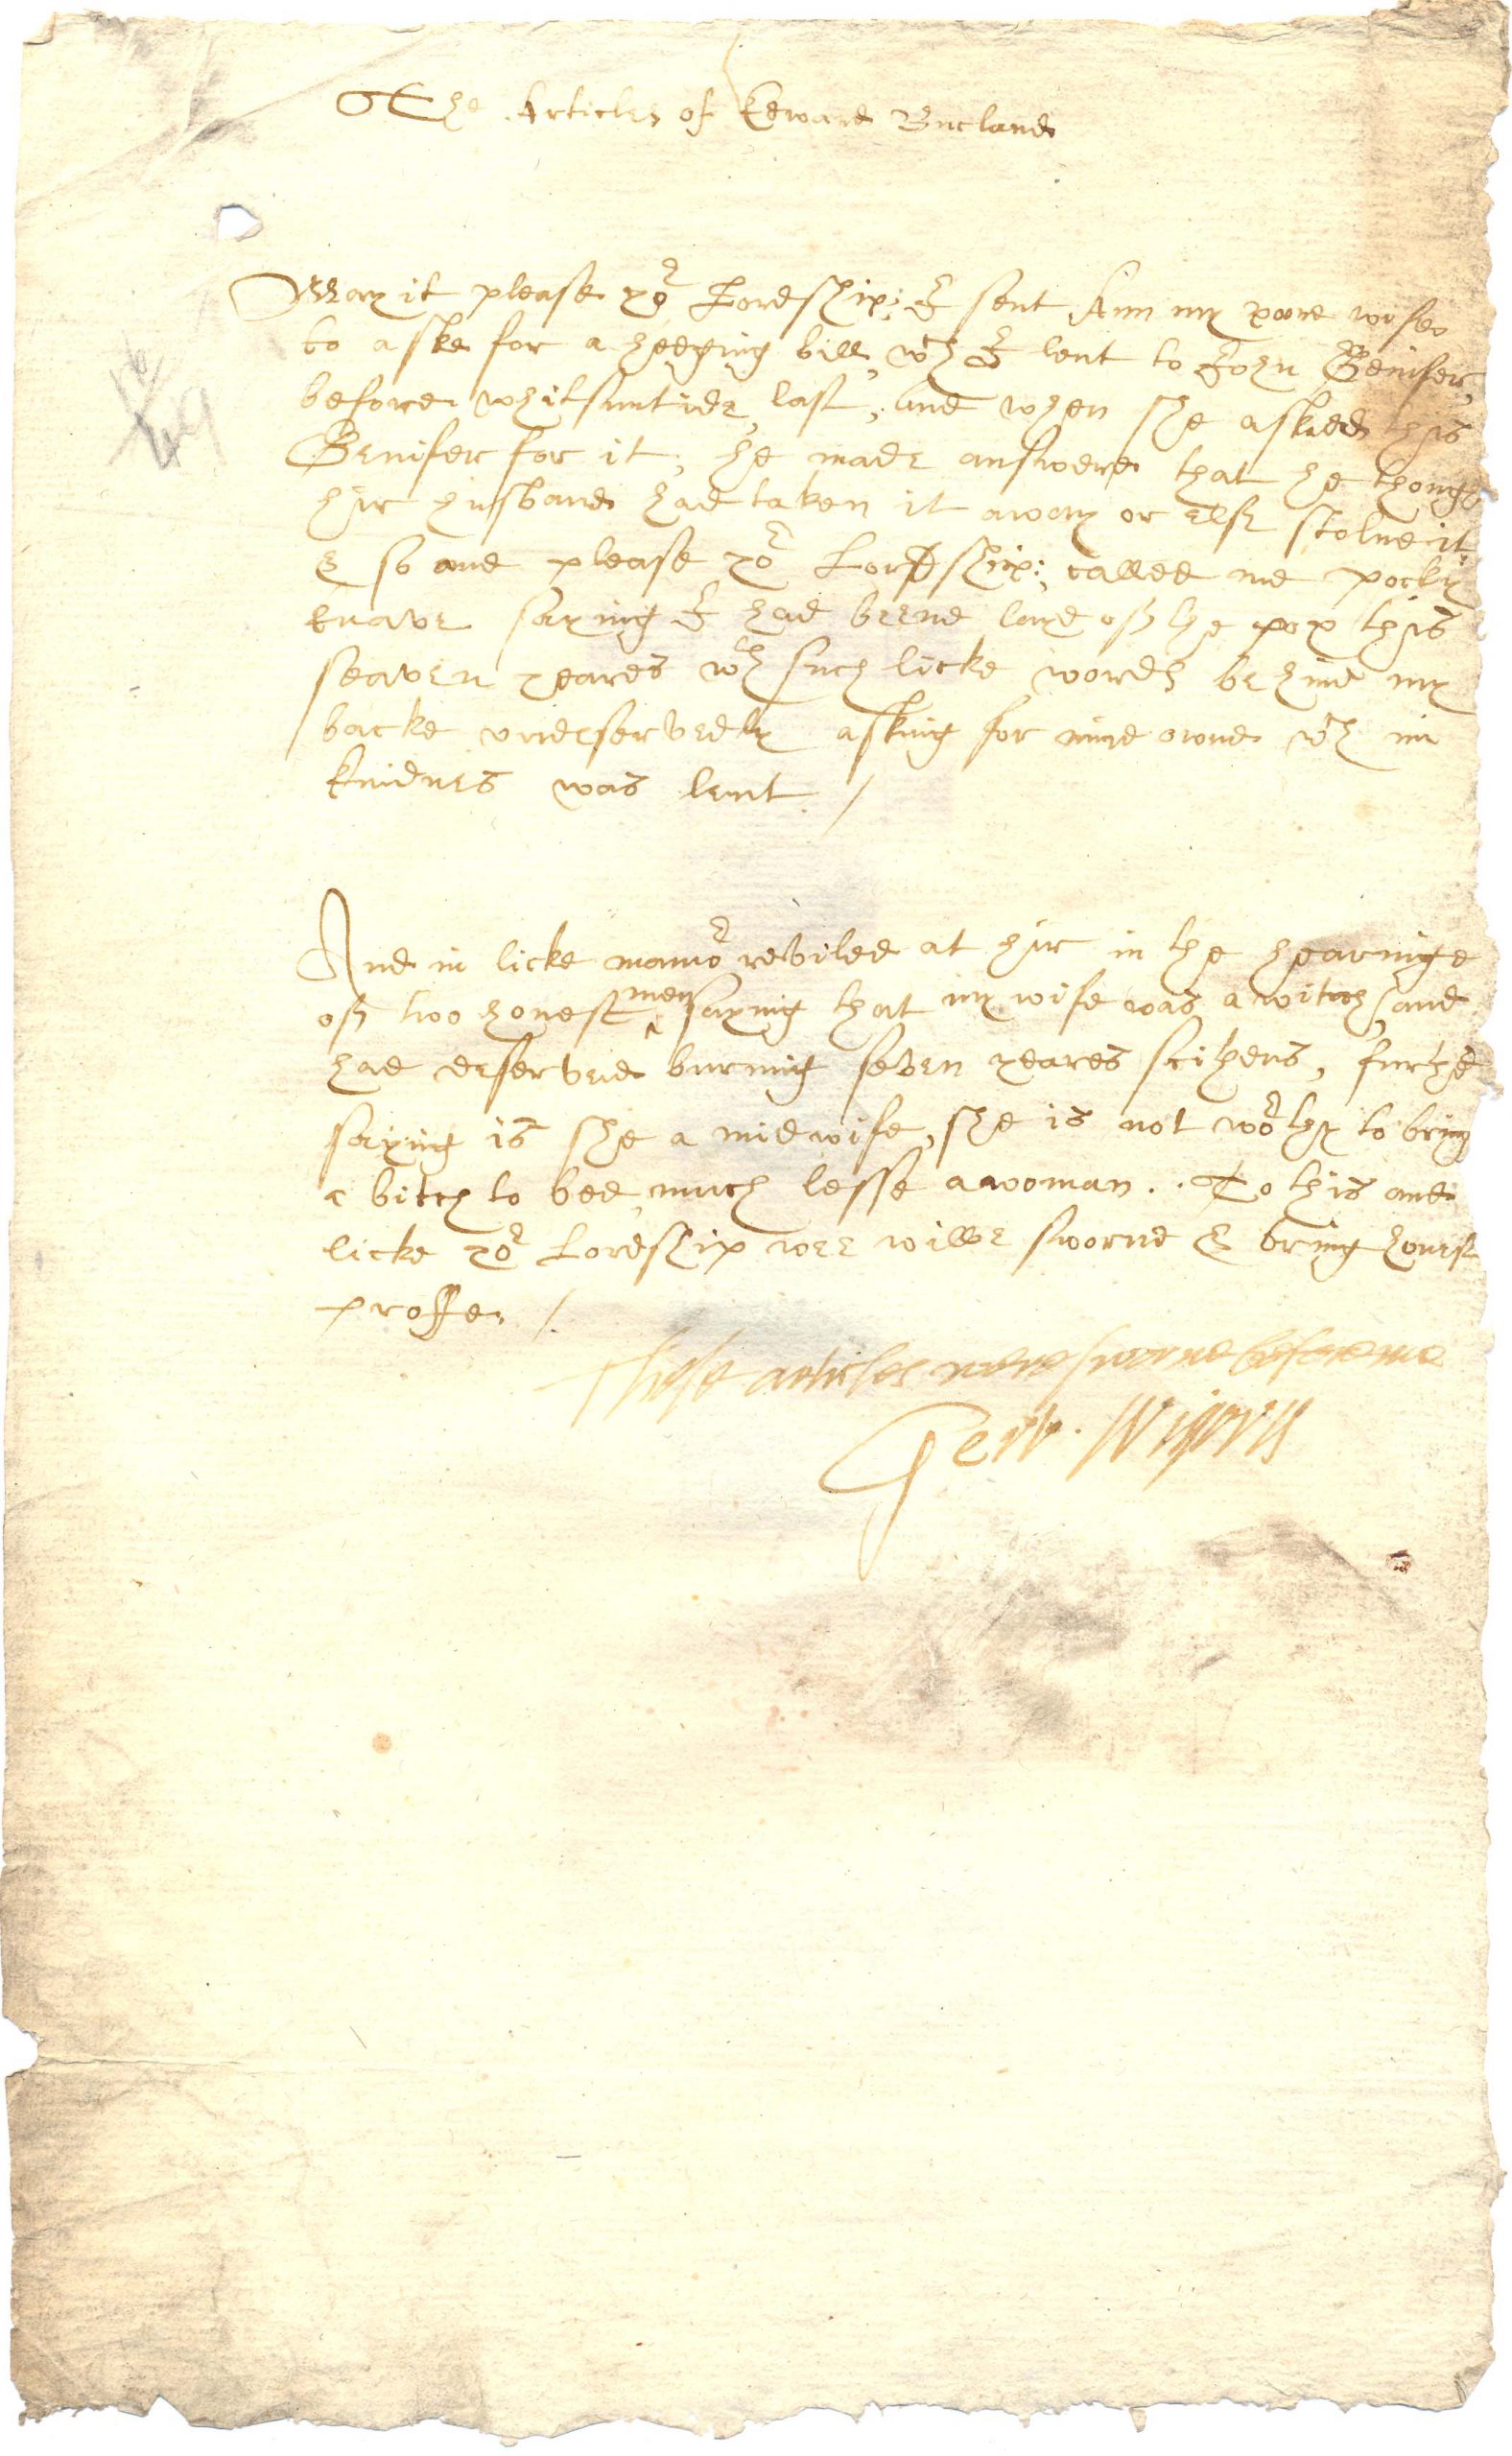 The Articles of Edward Bucland
May it please yor Lordship: I sent Ann my poore wife
to aske for a hedging bill, wch I lent to John Benifer,
before whitsuntide last, and when she asked this
Benifer for it, he made answere that he though
hir husband had taken it away or else stolne it
& so and please yor Lordship: called me pocky
knave saying I had beene layd of the pox this
seaven yeares wth such licke words behind my
backe undeservedly asking for mine owne wch in
kindnes was lent /
And in licke mannor reviled at hir in the hearinge
of two honest men saying that my wife was a witch, and
had deserved burning seven yeares sithens, furthe
saying is she a midwife, she is not worthy to bring
a bitch to bed, much lesse a woman. To this and
licke yor Lordship wee wilbe sworne & bring honest
proffe. /
These articles were sworne before me
Gerv. Wigorn